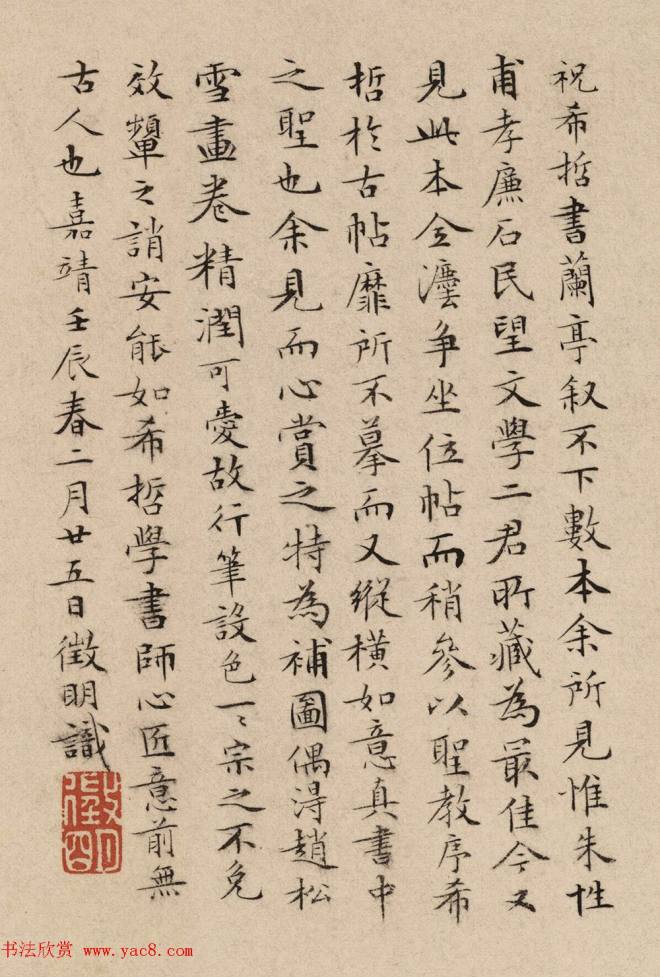 祝希哲書蘭亭叙不下數本余所見惟朱性
甫孝廉石民望文學二君所藏為最佳今又
見此本全灋争坐位帖而稍參以聖教序希
哲於古帖靡所不摹而又縱橫如意真書中
之聖也余見而心賞之特為補圖偶淂趙松
雪畫卷精潤可愛故行筆設色一〻宗之不免
效顰之誚安能如希哲學書師心匠意前無
古人也嘉靖壬辰春二月廿五日徵明識
徵明
书法欣赏 www.yac8.com